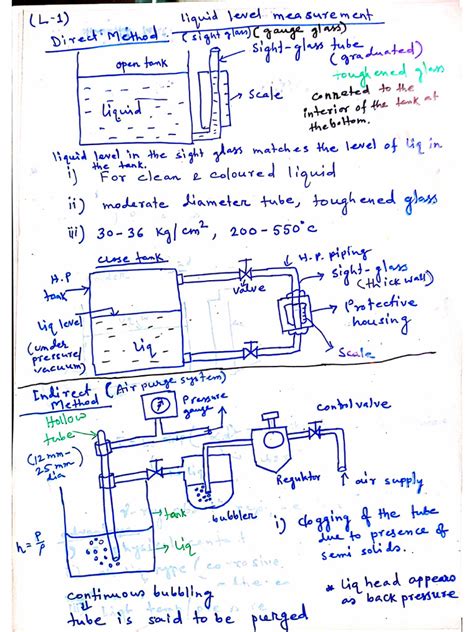 (L-1) liquid level measurement
Direct Method. (sight glass) (gauge glass)
Sight-glass tube
(graduated)
toughened glass
open tank
liquid
Scale
conneted to the
interior of the tank at
the bottom.
liquid level in the sight glass matches the level of liq in
the tank.
i) For clean & coloured liquid
ii) moderate diameter tube, toughened glass
iii) 30-36 kg/cm², 200-550°c
close tank
H.P. piping
Sight-glass
(thick wall)
H.P
tank
valve
Protective
housing
Liq level
(under
pressure/
vacuum)
Liq
Scale
Indirect (Air purge system)
Method
Pressure
gauge
Hollow
tube
(12mm-
25mm
dia
control valve
Regulator
air supply
bubbler
tank
Liq
h = P/ρ
i) clogging of the tube
due to presence of
semi solids.
continuous bubbling
tube is said to be purged
* Liq head appears
as back pressure